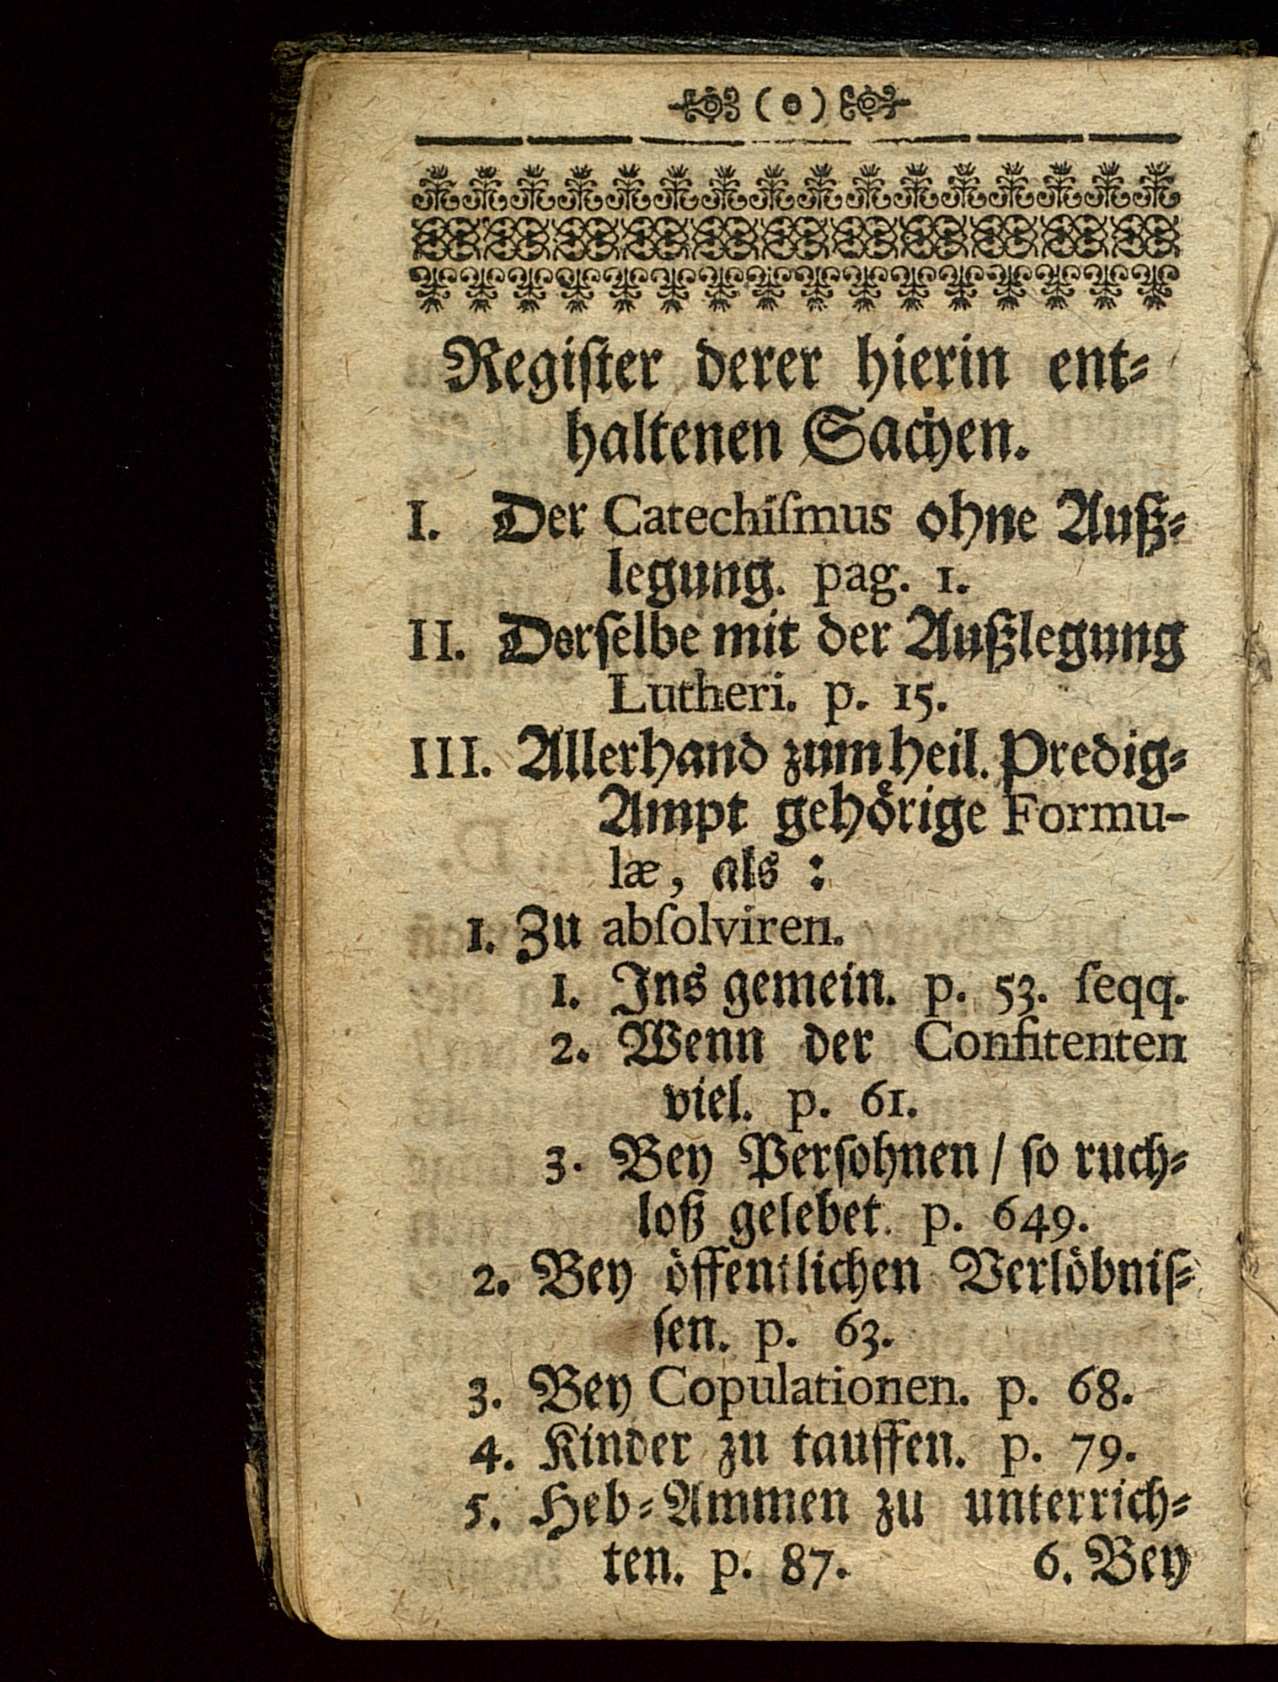 (o)
Regiſter derer hierin ent⸗
haltenen Sachen.
I. Der Catechiſmus ohne Außz⸗
legung. pag. 1.
II. Derſelbe mit der Außzlegung
Lutheri. p. 15.
III. Allerhand zum heil. Predig⸗
Ampt gehoͤrige Formu-
læ, als :
1. Zu abſolviren.
1. Ins gemein. p. 53. ſeqq.
2. Wenn der Confitenten
viel. p. 61.
3. Bey Perſohnen / ſo ruch⸗
loß gelebet. p. 649.
2. Bey oͤffentlichen Verloͤbniſ⸗
ſen. p. 63.
3. Bey Copulationen. p. 68.
4. Kinder zu tauffen. p. 79.
5. Heb⸗Ammen zu unterrich⸗
ten. p. 87. 6. Bey